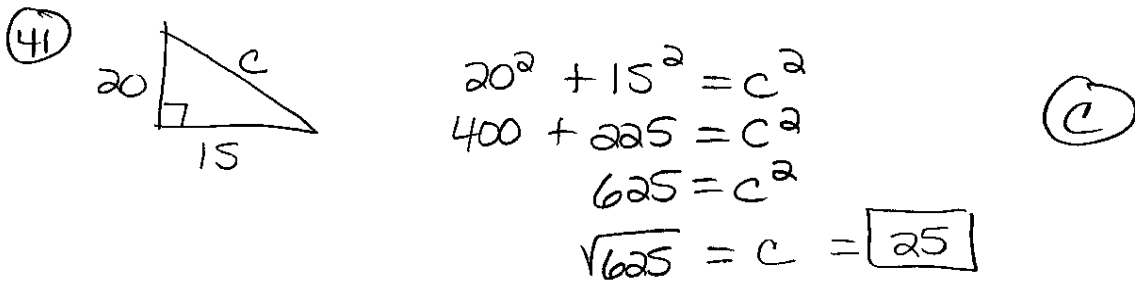 41
20
c
15
20² + 15² = c²
400 + 225 = c²
625 = c²
√625 = c = 25
C